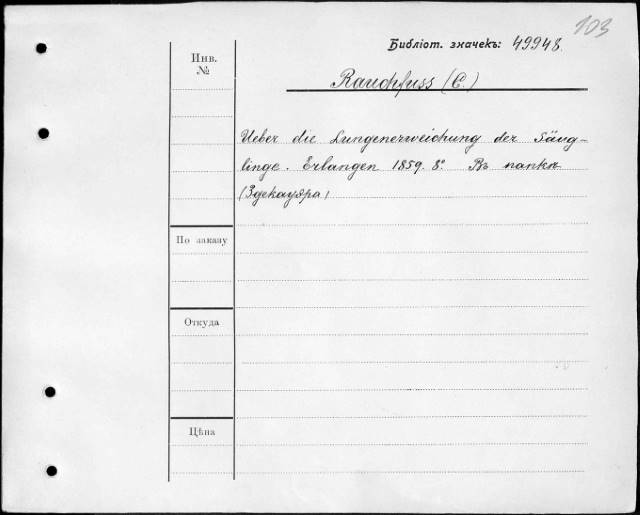 103
Библіот. значекъ: 49948.
Инв.
№
Rauchfuss (C.)
Ueber die Lungenerweichung der Säug-
linge. Erlangen 1859. 8°. Въ папкѣ
(Здекауэра)
По заказу
Откуда
Цѣна